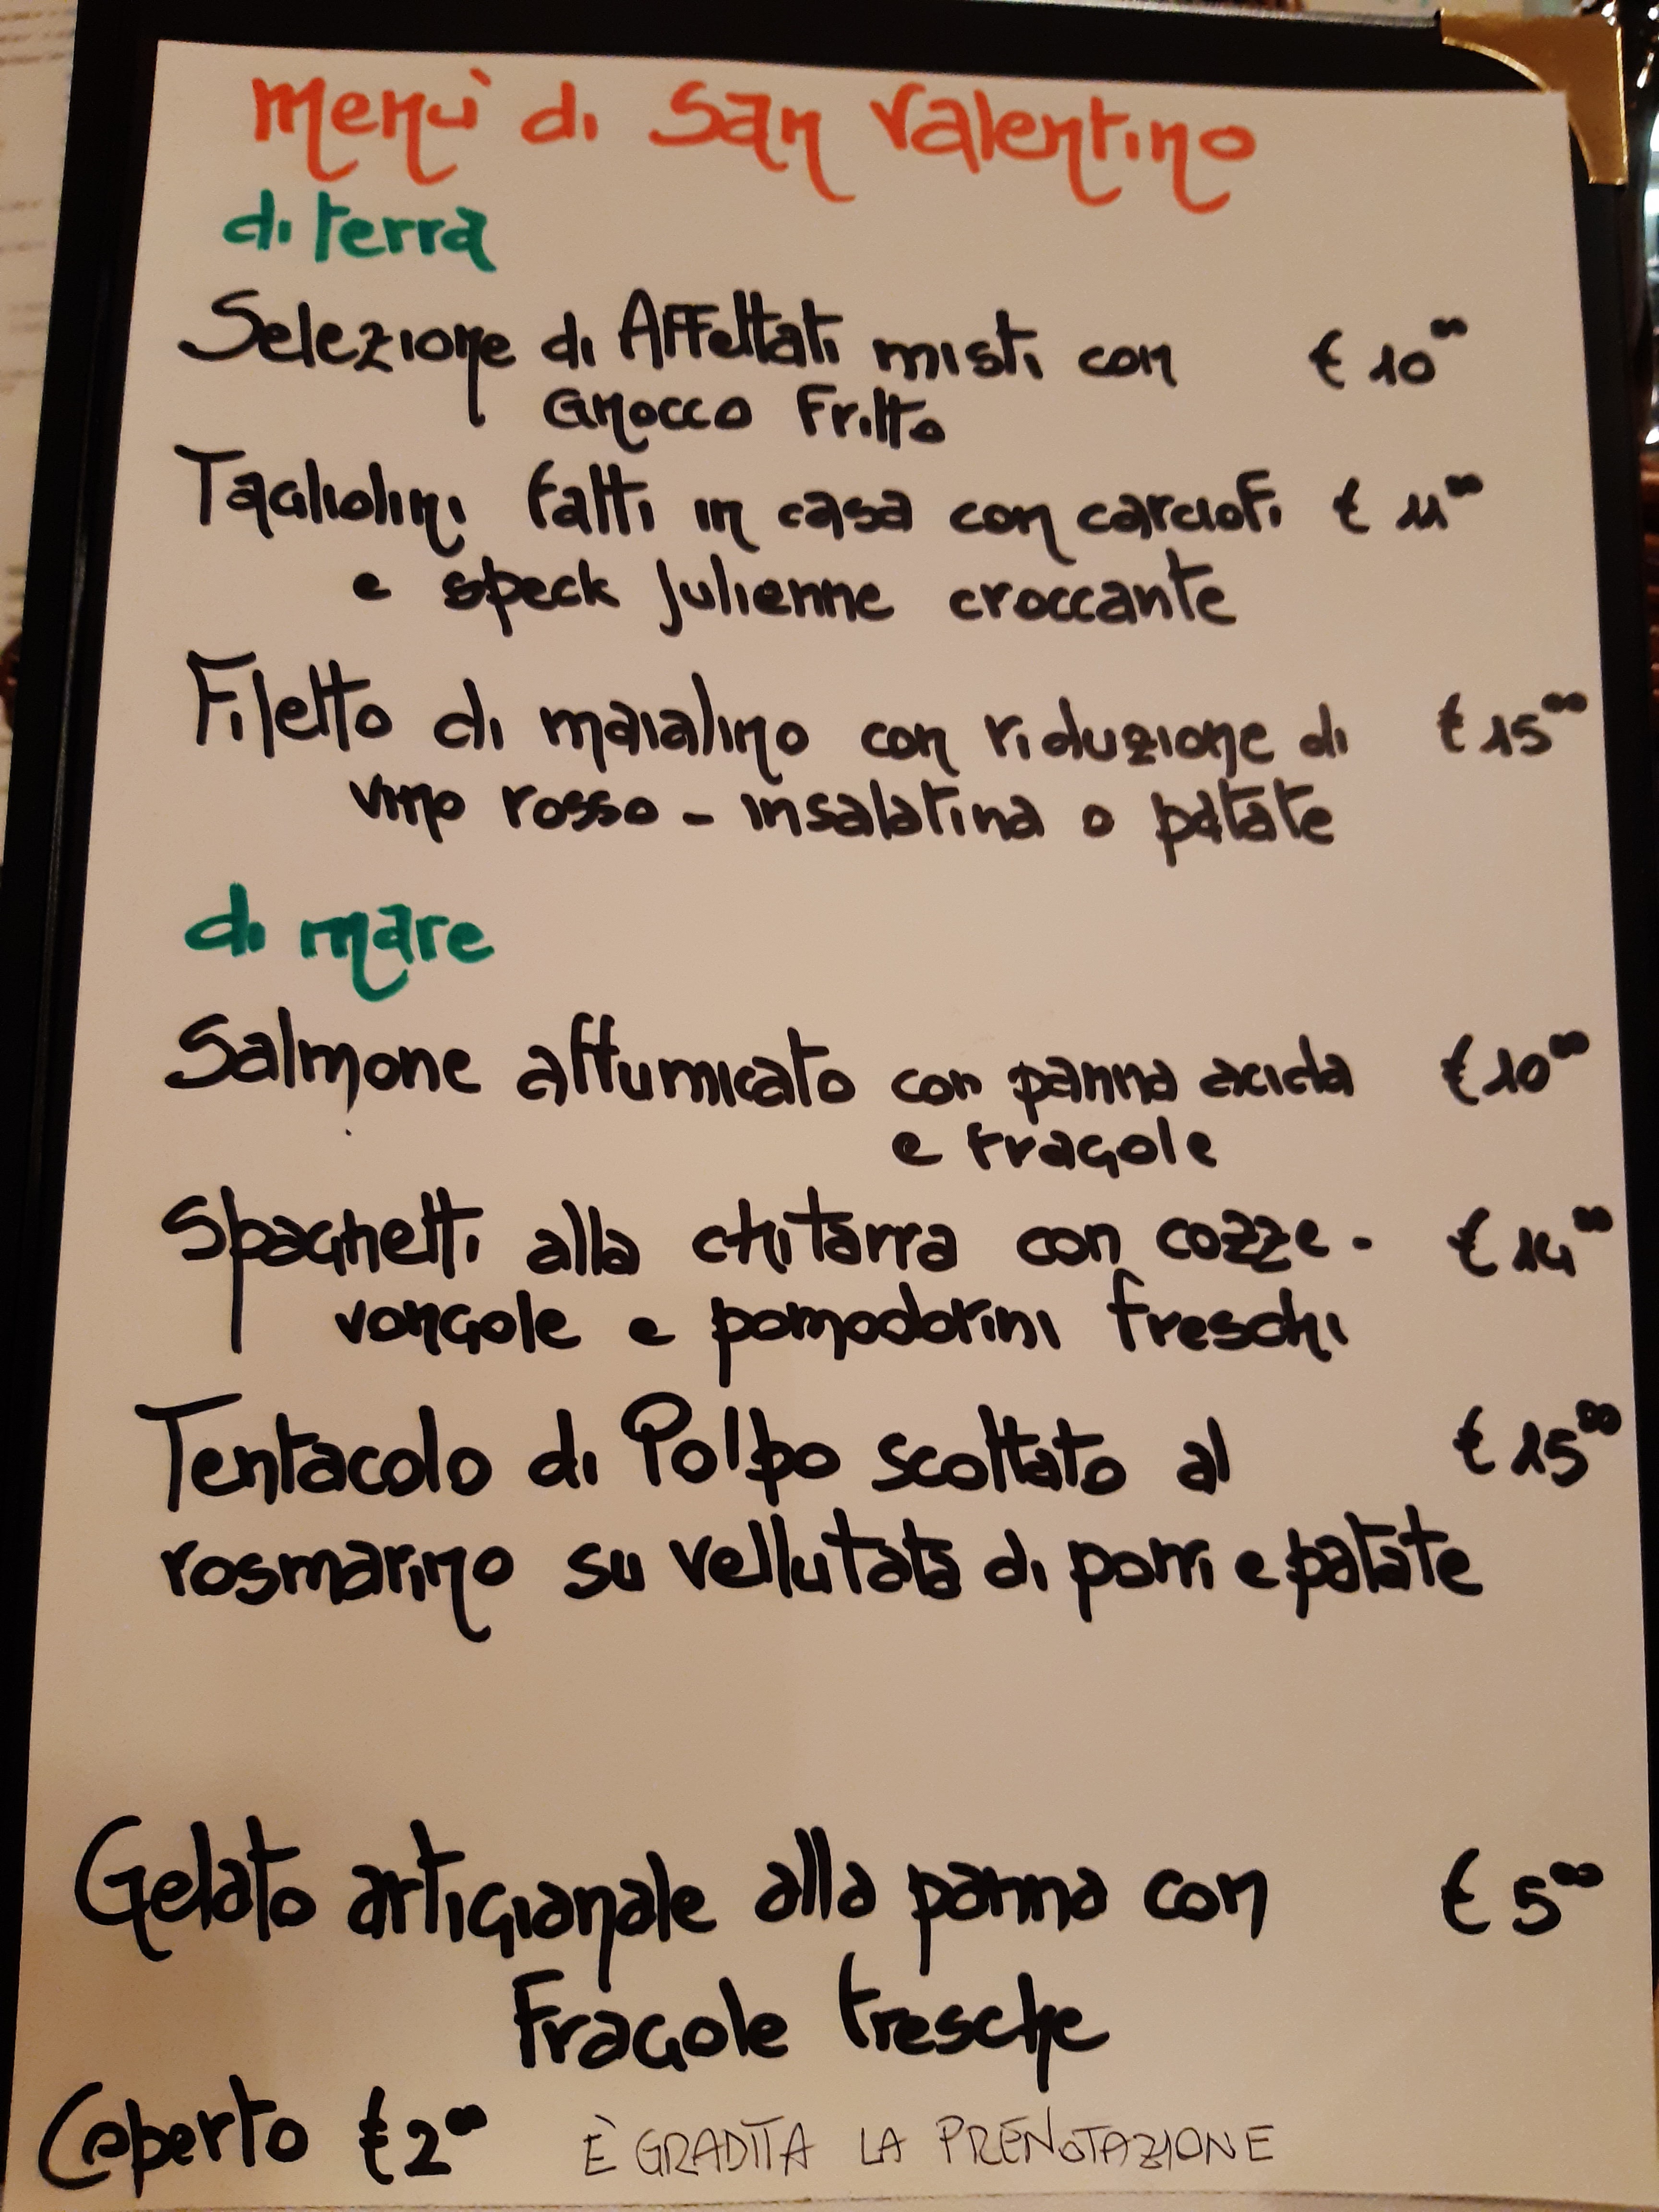 menù di San Valentino
di terra
Selezione di Affettati misti con € 10°°
Gnocco Fritto
Tagliolini fatti in casa con carciofi € 11°°
e speck Julienne croccante
Filetto di maialino con riduzione di € 15°°
vino rosso - insalatina o patate
di mare
Salmone affumicato con panna acida € 10°°
e fragole
Spaghetti alla chitarra con cozze. € 14°°
vongole e pomodorini freschi
Tentacolo di Polpo scottato al € 15°°
rosmarino su vellutata di porri e patate
Gelato artigianale alla panna con € 5°°
Fragole fresche
Coperto € 2°°
È GRADITA LA PRENOTAZIONE